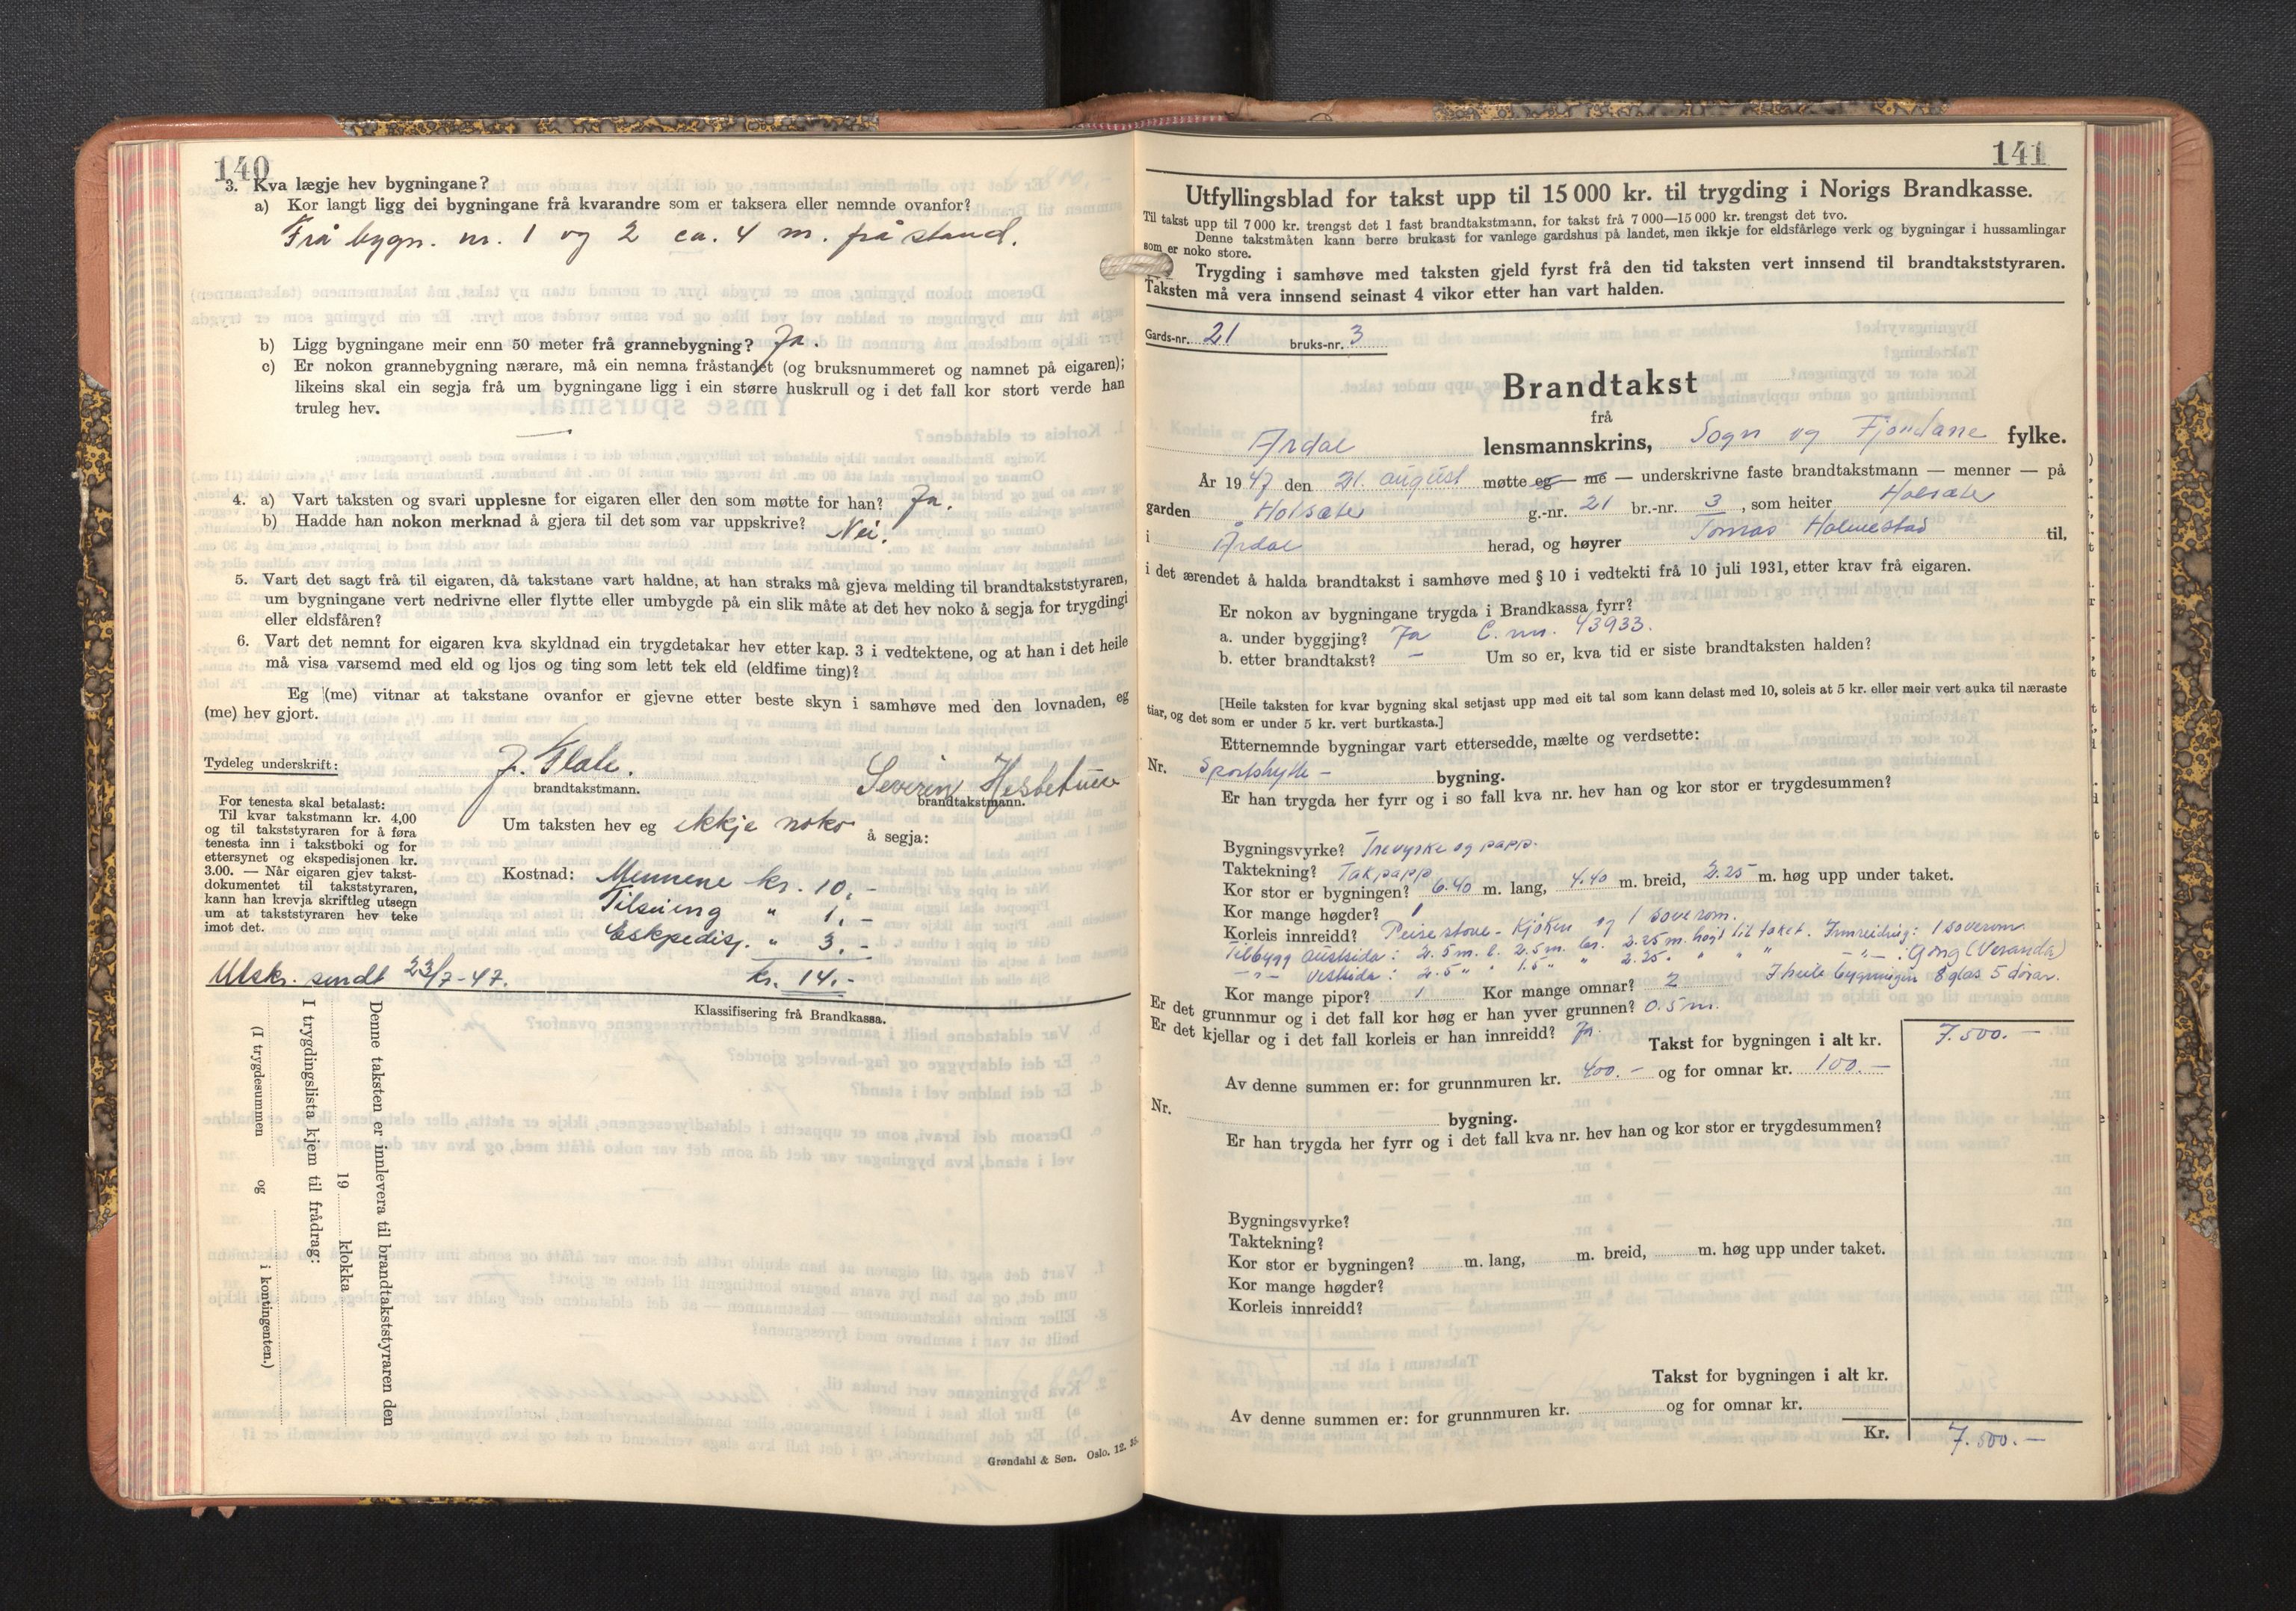 140
3. Kva lægje hev bygningane?
a) Kor langt ligg dei bygningane frå kvarandre som er taksera eller nemnde ovanfor?
Frå bygn. nr. 1 og 2 ca. 4 m. frå stand.
b) Ligg bygningane meir enn 50 meter frå grannebygning? Ja.
c) Er nokon grannebygning nærare, må ein nemna fråstandet (og bruksnummeret og namnet på eigaren);
likeins skal ein segja frå um bygningane ligg i ein større huskrull og i det fall kor stort verde han
truleg hev.
—
4. a) Vart taksten og svari upplesne for eigaren eller den som møtte for han? Ja.
b) Hadde han nokon merknad å gjera til det som var uppskrive? Nei.
5. Vart det sagt frå til eigaren, då takstane vart haldne, at han straks må gjeva melding til brandtakststyraren,
um bygningane vert nedrivne eller flytte eller umbygde på ein slik måte at det hev noko å segja for trygdingi
eller eldsfåren?
6. Vart det nemnt for eigaren kva skyldnad ein trygdetakar hev etter kap. 3 i vedtektene, og at han i det heile
må visa varsemd med eld og ljos og ting som lett tek eld (eldfime ting)?
Eg (me) vitnar at takstane ovanfor er gjevne etter beste skyn i samhøve med den lovnaden, eg
(me) hev gjort.
Tydeleg underskrift: J. Flate. Severin
brandtakstmann. brandtakstmann.
For tenesta skal betalast:
Til kvar takstmann kr. 4,00
og til takststyraren for å føra
tenesta inn i takstboki og for
ettersynet og ekspedisjonen kr.
3.00. — Når eigaren gjev takst-
dokumentet til takststyraren,
kann han krevja skriftleg utsegn
um at takststyraren hev teke
imot det.
Um taksten hev eg ikkje noko å segja:
Kostnad: Mennene kr. 10.-
Tilsieing " 1.-
Eskpedisj. " 3.-
kr. 14.-
Utskr. sendt 23/7-47.
Klassifisering frå Brandkassa.
Denne taksten er innlevera til brandtakststyraren den
19 klokka
I trygdingslista kjem til frådrag:
(I trygdesummen og i kontingenten.)
Grøndahl & Søn. Oslo. 12. 35.
141
Utfyllingsblad for takst upp til 15 000 kr. til trygding i Norigs Brandkasse.
Til takst upp til 7 000 kr. trengst det 1 fast brandtakstmann, for takst frå 7 000—15 000 kr. trengst det tvo.
Denne takstmåten kann berre brukast for vanlege gardshus på landet, men ikkje for eldsfårlege verk og bygningar i hussamlingar
som er noko store.
Trygding i samhøve med taksten gjeld fyrst frå den tid taksten vert innsend til brandtakststyraren.
Taksten må vera innsend seinast 4 vikor etter han vart halden.
Gards-nr. 21 bruks-nr. 3
Brandtakst
frå
Årdal lensmannskrins, Sogn og Fjordane fylke.
År 1947 den 21. august møtte eg — me — underskrivne faste brandtakstmann — menner — på
garden Holsæter g.-nr. 21 br.-nr. 3, som heiter Holsæter
i Årdal herad, og høyrer Tomas Holmestad til,
i det ærendet å halda brandtakst i samhøve med § 10 i vedtekti frå 10 juli 1931, etter krav frå eigaren.
Er nokon av bygningane trygda i Brandkassa fyrr?
a. under byggjing? Ja C. nr. 43933.
b. etter brandtakst? — Um so er, kva tid er siste brandtaksten halden?
[Heile taksten for kvar bygning skal setjast upp med eit tal som kann delast med 10, soleis at 5 kr. eller meir vert auka til næraste
tiar, og det som er under 5 kr. vert burtkasta.]
Etternemnde bygningar vart ettersedde, mælte og verdsette:
Nr. Sportshytte - bygning.
Er han trygda her fyrr og i so fall kva nr. hev han og kor stor er trygdesummen?
Bygningsvyrke? Trevyrke og papp.
Taktekning? Takpapp
Kor stor er bygningen? 6.40 m. lang, 4.40 m. breid, 2.25 m. høg upp under taket.
Kor mange høgder? 1
Korleis innreidd? Peisestove - kjøken og 1 soverom.
Tilbygg austsida: 2.5 m. l. 2.5 m. br. 2.25 m. høgt til taket. Innreidnig: 1 soverom
—"— vestsida: 2.5 " " 1.5 " " 2.25 " " " " —"— : Gong (Veranda)
Kor mange pipor? 1 Kor mange omnar? 2 I heile bygningen 8 glas 5 dørar.
Er det grunnmur og i det fall kor høg er han yver grunnen? 0.5 m.
Er det kjellar og i det fall korleis er han innreidd? Ja.
Takst for bygningen i alt kr. 7.500.—
Av denne summen er: for grunnmuren kr. 400.— og for omnar kr. 100.—
Nr. bygning.
Er han trygda her fyrr og i det fall kva nr. hev han og kor stor er trygdesummen?
Bygningsvyrke?
Taktekning?
Kor stor er bygningen? m. lang, m. breid, m. høg upp under taket.
Kor mange høgder?
Korleis innreidd?
Takst for bygningen i alt kr.
Av denne summen er: for grunnmuren kr. og for omnar kr.
Kr. 7.500.—